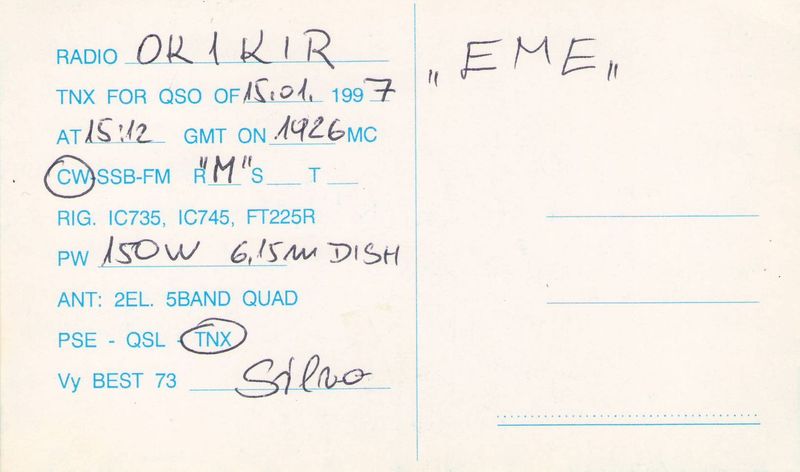 RADIO OK1KIR
TNX FOR QSO OF 15.01. 1997
AT 15:12 GMT ON 1926 MC
CW-SSB-FM R "M" S ___ T ___
RIG. IC735, IC745, FT225R
PW 150W 6,15m DISH
ANT: 2EL. 5BAND QUAD
PSE - QSL - TNX
Vy BEST 73 Silvo
„EME„